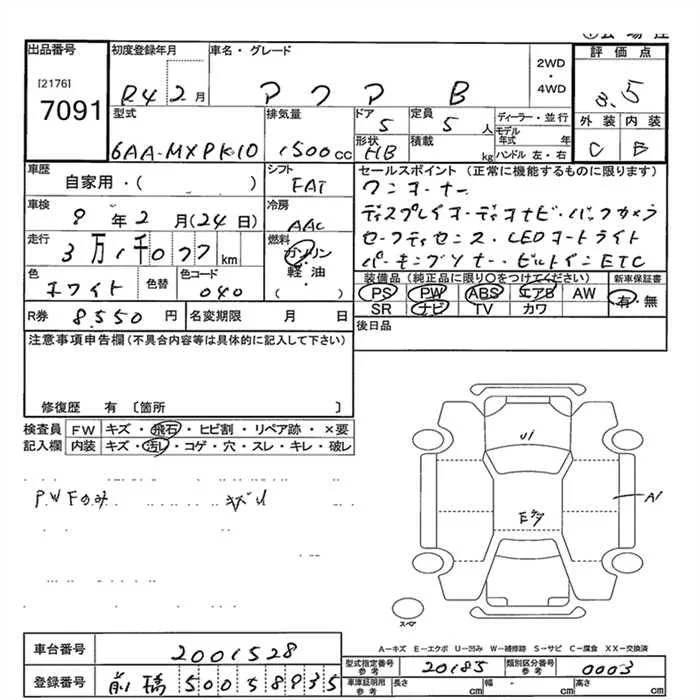 出品番号
[2176]
7091
初度登録年月
R4 2月
車名・グレード
アクア B
2WD
・
4WD
評価点
3.5
外装 内装
C B
型式
6AA-MXPK10
排気量
1500cc
ドア
5
定員
5人
形状
HB
積載
kg
ディーラー・並行
モデル年式 年
ハンドル 左・右
車歴
自家用・( )
シフト
FAT
セールスポイント (正常に機能するものに限ります)
ワンオーナー
ディスプレイオーディオナビ・バックカメラ
セーフティセンス・LEDオートライト
パーキングソナー・ビルトインETC
車検
9年2月(24日)
冷房
AAC
走行
3万1千077km
燃料
ガソリン
軽・油
( )
色
ホワイト
色替
色コード
040
装備品 (純正品に限り○をつけてください)
新車保証書
PS PW ABS エアB AW
有・無
SR ナビ TV カワ
R券 8,550円
名変期限 月 日
後日品
注意事項申告欄(不具合内容等は具体的に記入して下さい)
修復歴 有 〔箇所 〕
検査員 FW キズ・飛石・ヒビ割・リペア跡・×要
記入欄 内装 キズ・汚し・コゲ・穴・スレ・キレ・破レ
PWFのみ
U1
A1
スペア
A-キズ E-エクボ U-凹み W-補修跡 S-サビ C-腐食 XX-交換済
車台番号 2001528
登録番号 前橋 500 5 8935
型式指定番号 参考 20185
類別区分番号 参考 0003
車庫証明用 参考 長さ cm 幅 cm 高さ cm